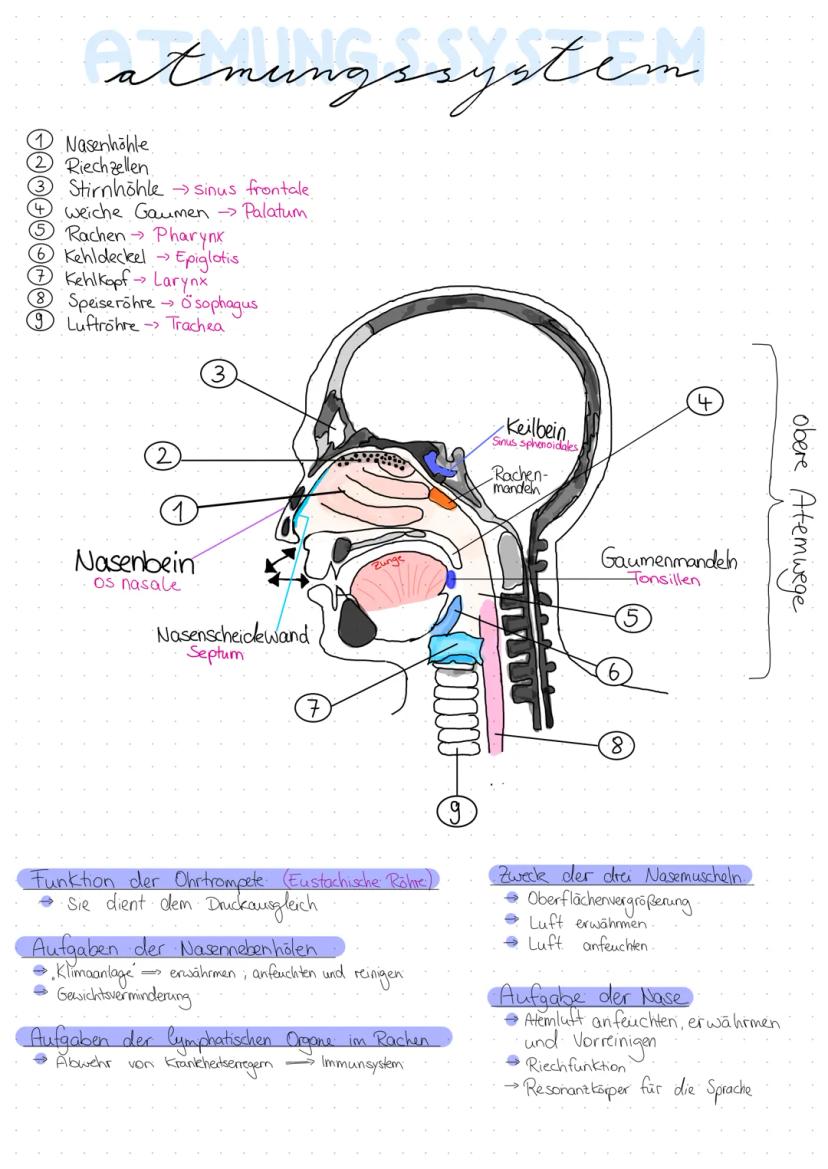 ATMUNGSSYSTEM
atmungssystem
① Nasenhöhle
② Riechzellen
③ Stirnhöhle → sinus frontale
④ weiche Gaumen → Palatum
⑤ Rachen → Pharynx
⑥ Kehldeckel → Epiglotis
⑦ Kehlkopf → Larynx
⑧ Speiseröhre → Ösophagus
⑨ Luftröhre → Trachea
3
4
Keilbein
Sinus sphenoidales
2
Rachen-
mandeln
1
obere Atemwege
Nasenbein
Os nasale
Zunge
Gaumenmandeln
Tonsillen
5
Nasenscheidewand
Septum
6
7
8
9
Funktion der Ohrtrompete (Eustachische Röhre)
→ Sie dient dem Druckausgleich
Aufgaben der Nasennebenhölen
→ „Klimaanlage" ⟹ erwährmen, anfeuchten und reinigen
→ Gewichtsverminderung
Aufgaben der lymphatischen Organe im Rachen
→ Abwehr von Krankheitserregern ⟹ Immunsystem
Zweck der drei Nasemuscheln
→ Oberflächenvergrößerung
→ Luft erwähmen
→ Luft anfeuchten
Aufgabe der Nase
→ Atemluft anfeuchten, erwährmen
und Vorreinigen
→ Riechfunktion
→ Resonanzkörper für die Sprache